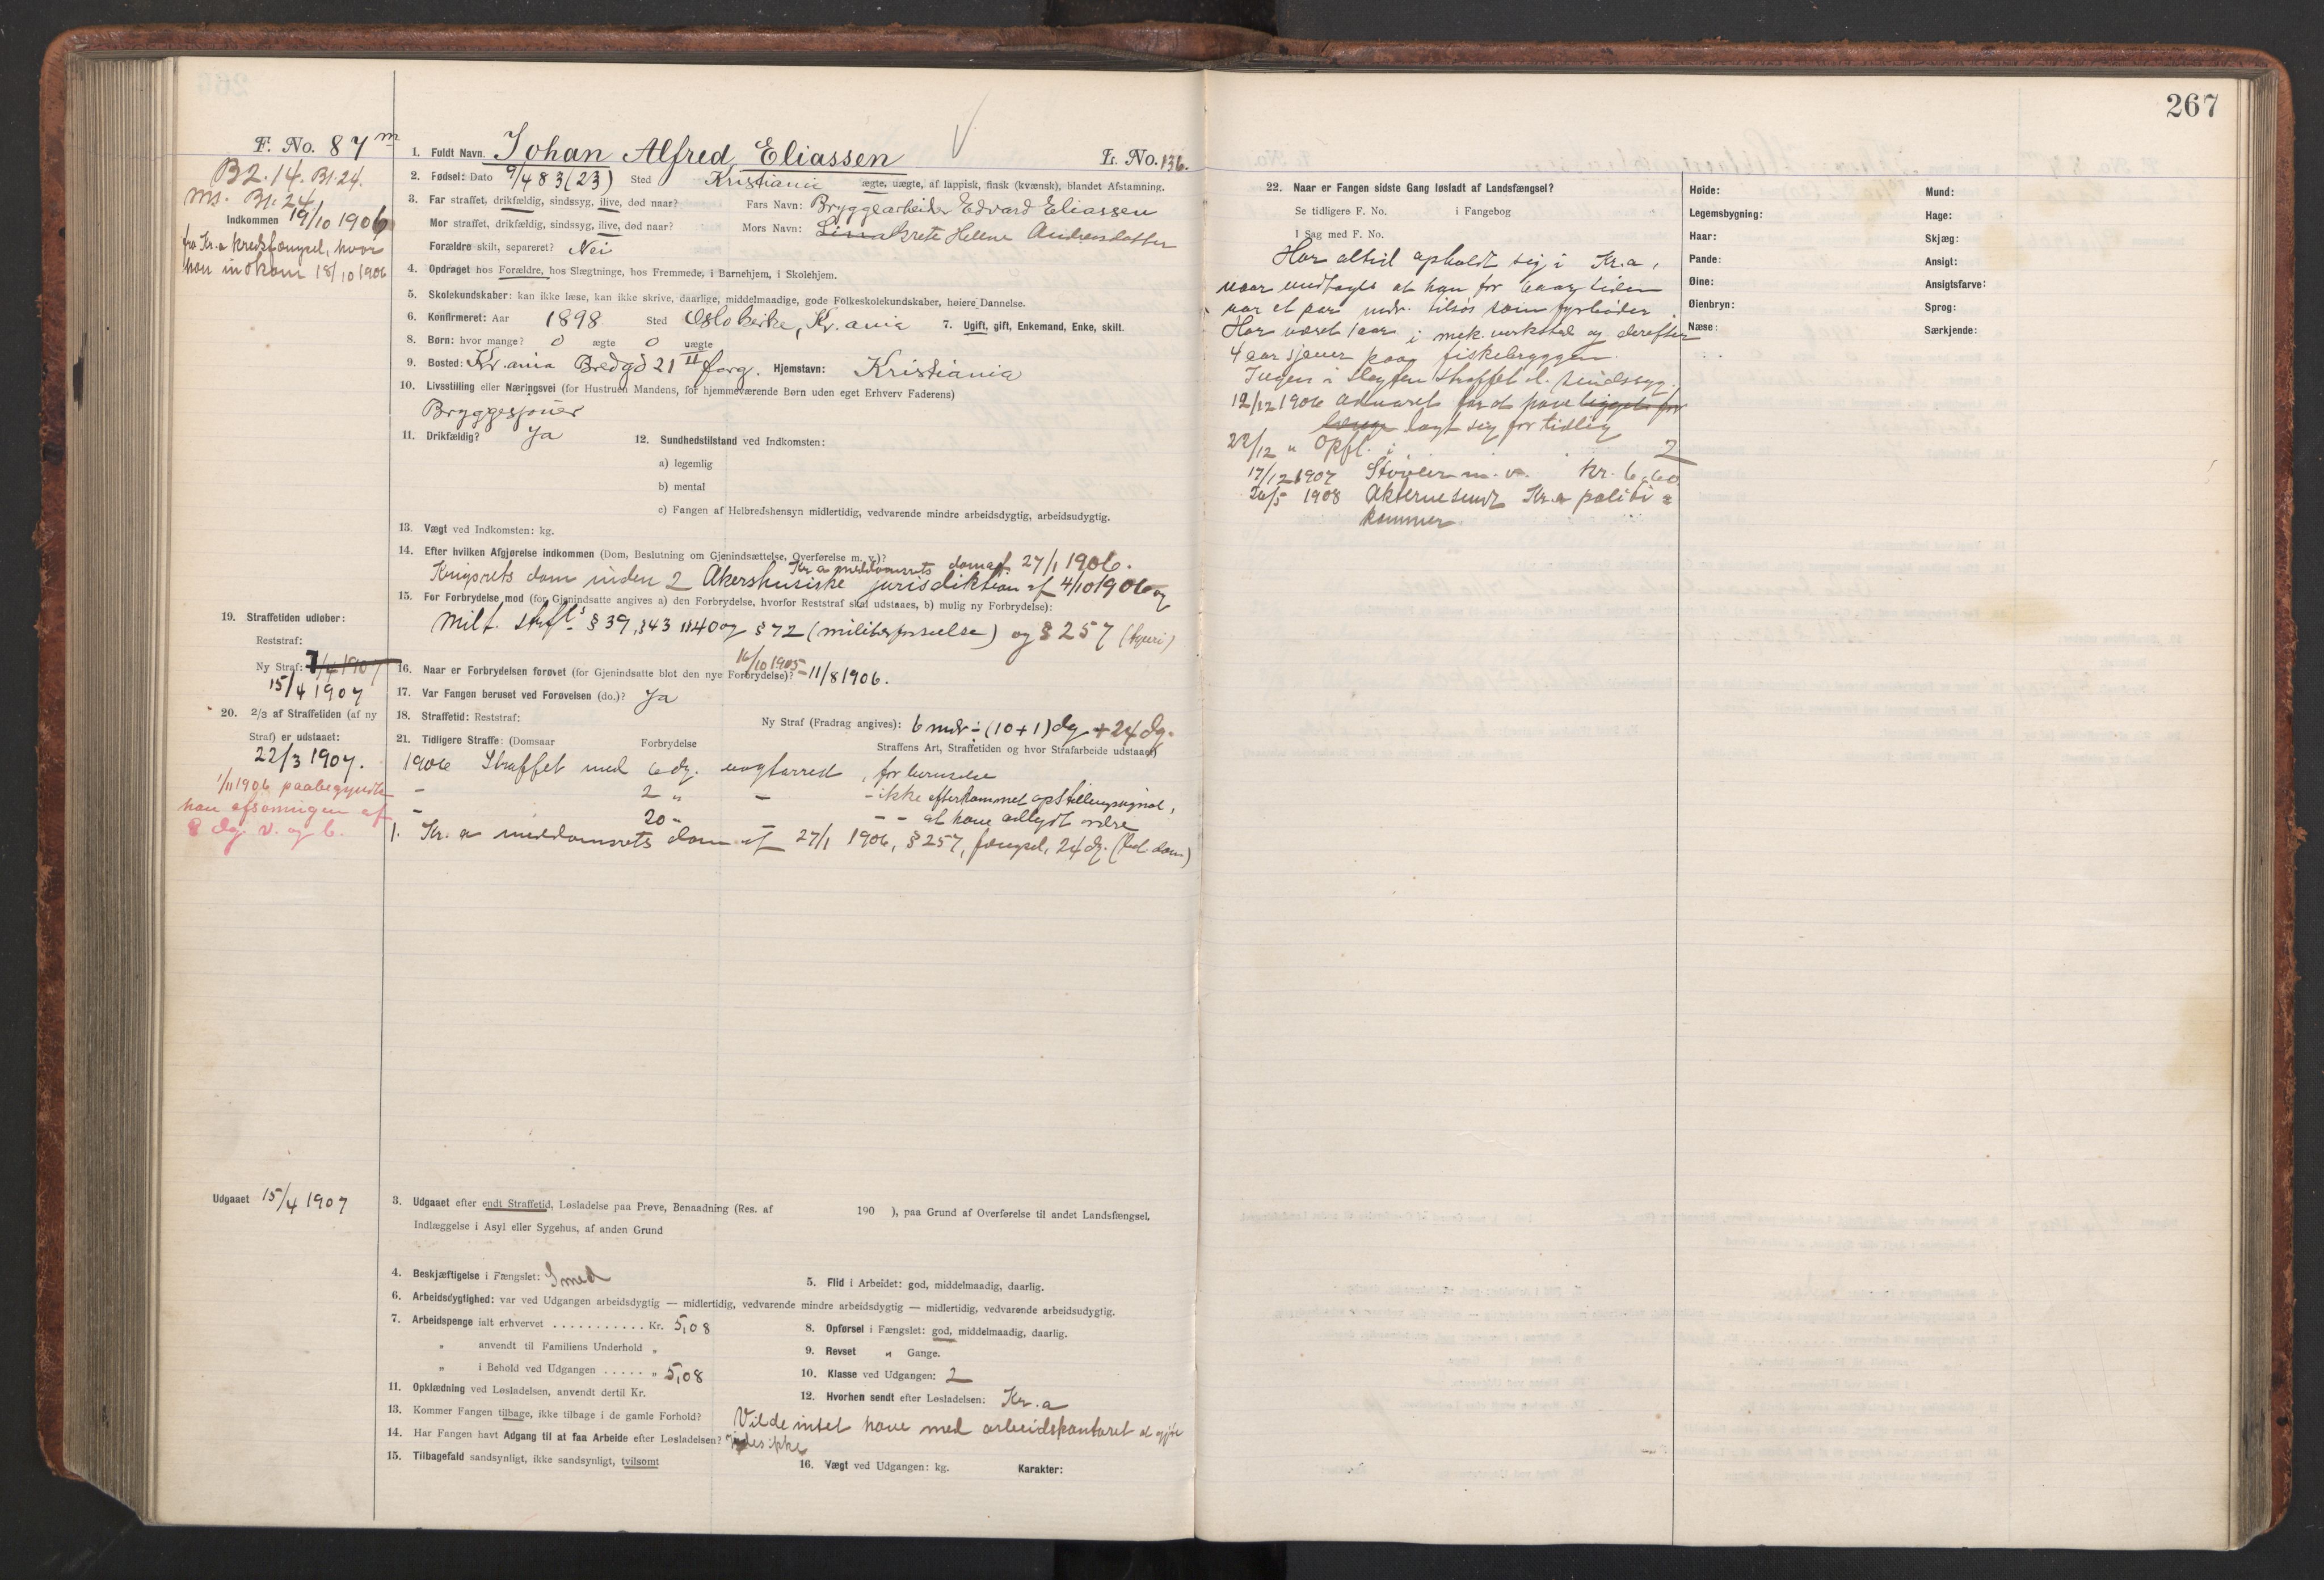 267
F. No. 87 m
B2. 14. Bl. 24.
Ms. Bl. 24.
Indkommen 19/10 1906
fra Kr.a kredsfængsel, hvor
han indkom 18/10 1906
1. Fuldt Navn. Johan Alfred Eliassen L. No. 136.
2. Fødsel: Dato 9/4 83 (23) Sted Kristiania ægte, uægte, af lappisk, finsk (kvænsk), blandet Afstamning.
3. Far straffet, drikfældig, sindssyg, ilive, død naar? Fars Navn: Bryggearbeider Edvard Eliassen
Mor straffet, drikfældig, sindssyg, ilive, død naar? Mors Navn: Grete Hellene Andersdatter
Forældre skilt, separeret? Nei
4. Opdraget hos Forældre, hos Slægtninge, hos Fremmede, i Barnehjem, i Skolehjem.
5. Skolekundskaber: kan ikke læse, kan ikke skrive, daarlige, middelmaadige, gode Folkeskolekundskaber, høiere Dannelse.
6. Konfirmeret: Aar 1898 Sted Oslo kirke, Kr.ania 7. Ugift, gift, Enkemand, Enke, skilt.
8. Børn: hvor mange? 0 ægte 0 uægte
9. Bosted: Kr.ania Bredgd 21 II forg. Hjemstavn: Kristiania
10. Livsstilling eller Næringsvei (for Hustruen Mandens, for hjemmeværende Børn uden eget Erhverv Faderens)
Bryggesjouer
11. Drikfældig? Ja 12. Sundhedstilstand ved Indkomsten:
a) legemlig
b) mental
c) Fangen af Helbredshensyn midlertidig, vedvarende mindre arbeidsdygtig, arbeidsudygtig.
13. Vægt ved Indkomsten: kg.
14. Efter hvilken Afgjørelse indkommen (Dom, Beslutning om Gjenindsættelse, Overførelse m. v.)?
Kr.a meddomsrets dom af 27/1 1906.
Krigsrets dom inden 2 Akershusiske jurisdiktion af 4/10 1906 og
15. For Forbrydelse mod (for Gjenindsatte angives a) den Forbrydelse, hvorfor Reststraf skal udstaaes, b) mulig ny Forbrydelse):
Milt. strfl's § 39, § 43 40 og § 72 (militærforseelse) og § 257 (tyveri)
19. Straffetiden udløber:
Reststraf:
Ny Straf: 7/4 1907
15/4 1907
16. Naar er Forbrydelsen forøvet (for Gjenindsatte blot den nye Forbrydelse)? 16/10 1905 - 11/8 1906.
17. Var Fangen beruset ved Forøvelsen (do.)? Ja
18. Straffetid: Reststraf: Ny Straf (Fradrag angives): 6 mdr ÷ (10 + 1) dg + 24 dg.
20. 2/3 af Straffetiden (af ny
Straf) er udstaaet:
22/3 1907.
1/11 1906 paabegyndte
han afsoningen af
8 dg. v. og b.
21. Tidligere Straffe: (Domsaar Forbrydelse Straffens Art, Straffetiden og hvor Strafarbeide udstaaet)
1906 Straffet med 6 dg. vagtarrest, for beruselse
- 2 " - - ikke efterkommet opstillingssignal,
- 20 - - - at have adlydt ordre
1. Kr.a meddomsrets dom af 27/1 1906, § 257, fængsel, 24 dg. (bet. dom)
Udgaaet 15/4 1907
3. Udgaaet efter endt Straffetid, Løsladelse paa Prøve, Benaadning (Res. af 190 ), paa Grund af Overførelse til andet Landsfængsel.
Indlæggelse i Asyl eller Sygehus, af anden Grund
4. Beskjæftigelse i Fængslet: Smed 5. Flid i Arbeidet: god, middelmaadig, daarlig.
6. Arbeidsdygtighed: var ved Udgangen arbeidsdygtig — midlertidig, vedvarende mindre arbeidsdygtig — midlertidig, vedvarende arbeidsudygtig.
7. Arbeidspenge ialt erhvervet . . . . . . . . . . . Kr. 5,08 8. Opførsel i Fængslet: god, middelmaadig, daarlig.
" anvendt til Familiens Underhold " 9. Revset " Gange.
" i Behold ved Udgangen . . . . . " 5,08 10. Klasse ved Udgangen: 2
11. Opklædning ved Løsladelsen, anvendt dertil Kr. 12. Hvorhen sendt efter Løsladelsen: Kr.a
13. Kommer Fangen tilbage, ikke tilbage i de gamle Forhold?
14. Har Fangen havt Adgang til at faa Arbeide efter Løsladelsen? Vilde intet have med arbeidskontoret at gjøre
vides ikke
15. Tilbagefald sandsynligt, ikke sandsynligt, tvilsomt 16. Vægt ved Udgangen: kg. Karakter:
22. Naar er Fangen sidste Gang løsladt af Landsfængsel?
Se tidligere F. No. i Fangebog
I Sag med F. No.
Har altid opholdt sig i Kr.a,
naar undtages at han for 6 aar siden
var et par mdr. tilsøs som fyrbøder.
Har været 1 aar i mek. verksted og derefter
4 aar sjouer paa fiskebryggen.
Ingen i slegten straffet el. sindssyg.
12/12 1906 Advaret for at have ligget for
længe lagt sig for tidlig
22/12 " Opfl. i 2
17/12 1907 Støvler m. v. Kr. 6,60
26/5 1908 Akterne sendt Kr.a politi-
kammer.
Høide:
Legemsbygning:
Haar:
Pande:
Øine:
Øienbryn:
Næse:
Mund:
Hage:
Skjæg:
Ansigt:
Ansigtsfarve:
Sprog:
Særkjende: